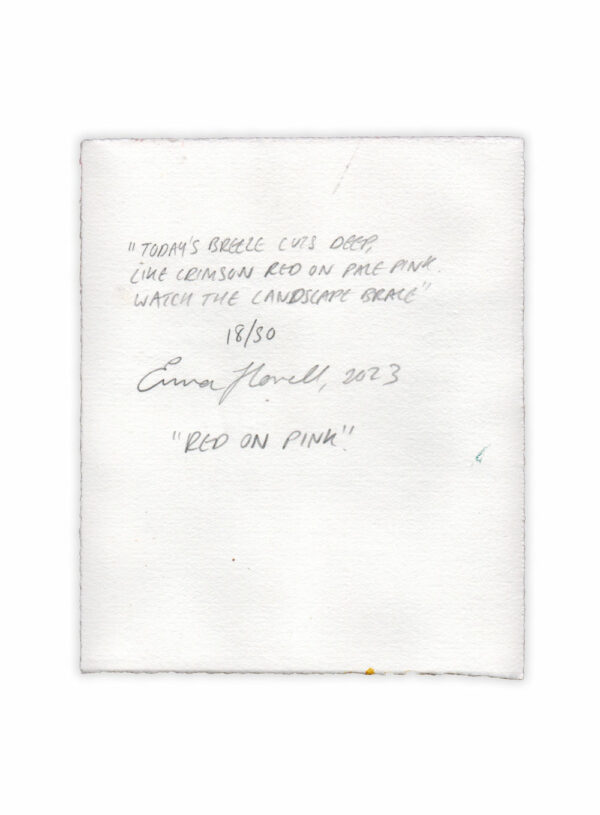 "TODAY'S BREEZE CUTS DEEP,
LIKE CRIMSON RED ON PALE PINK.
WATCH THE LANDSCAPE BRACE"
18/30
Emma Howell, 2023
"RED ON PINK".